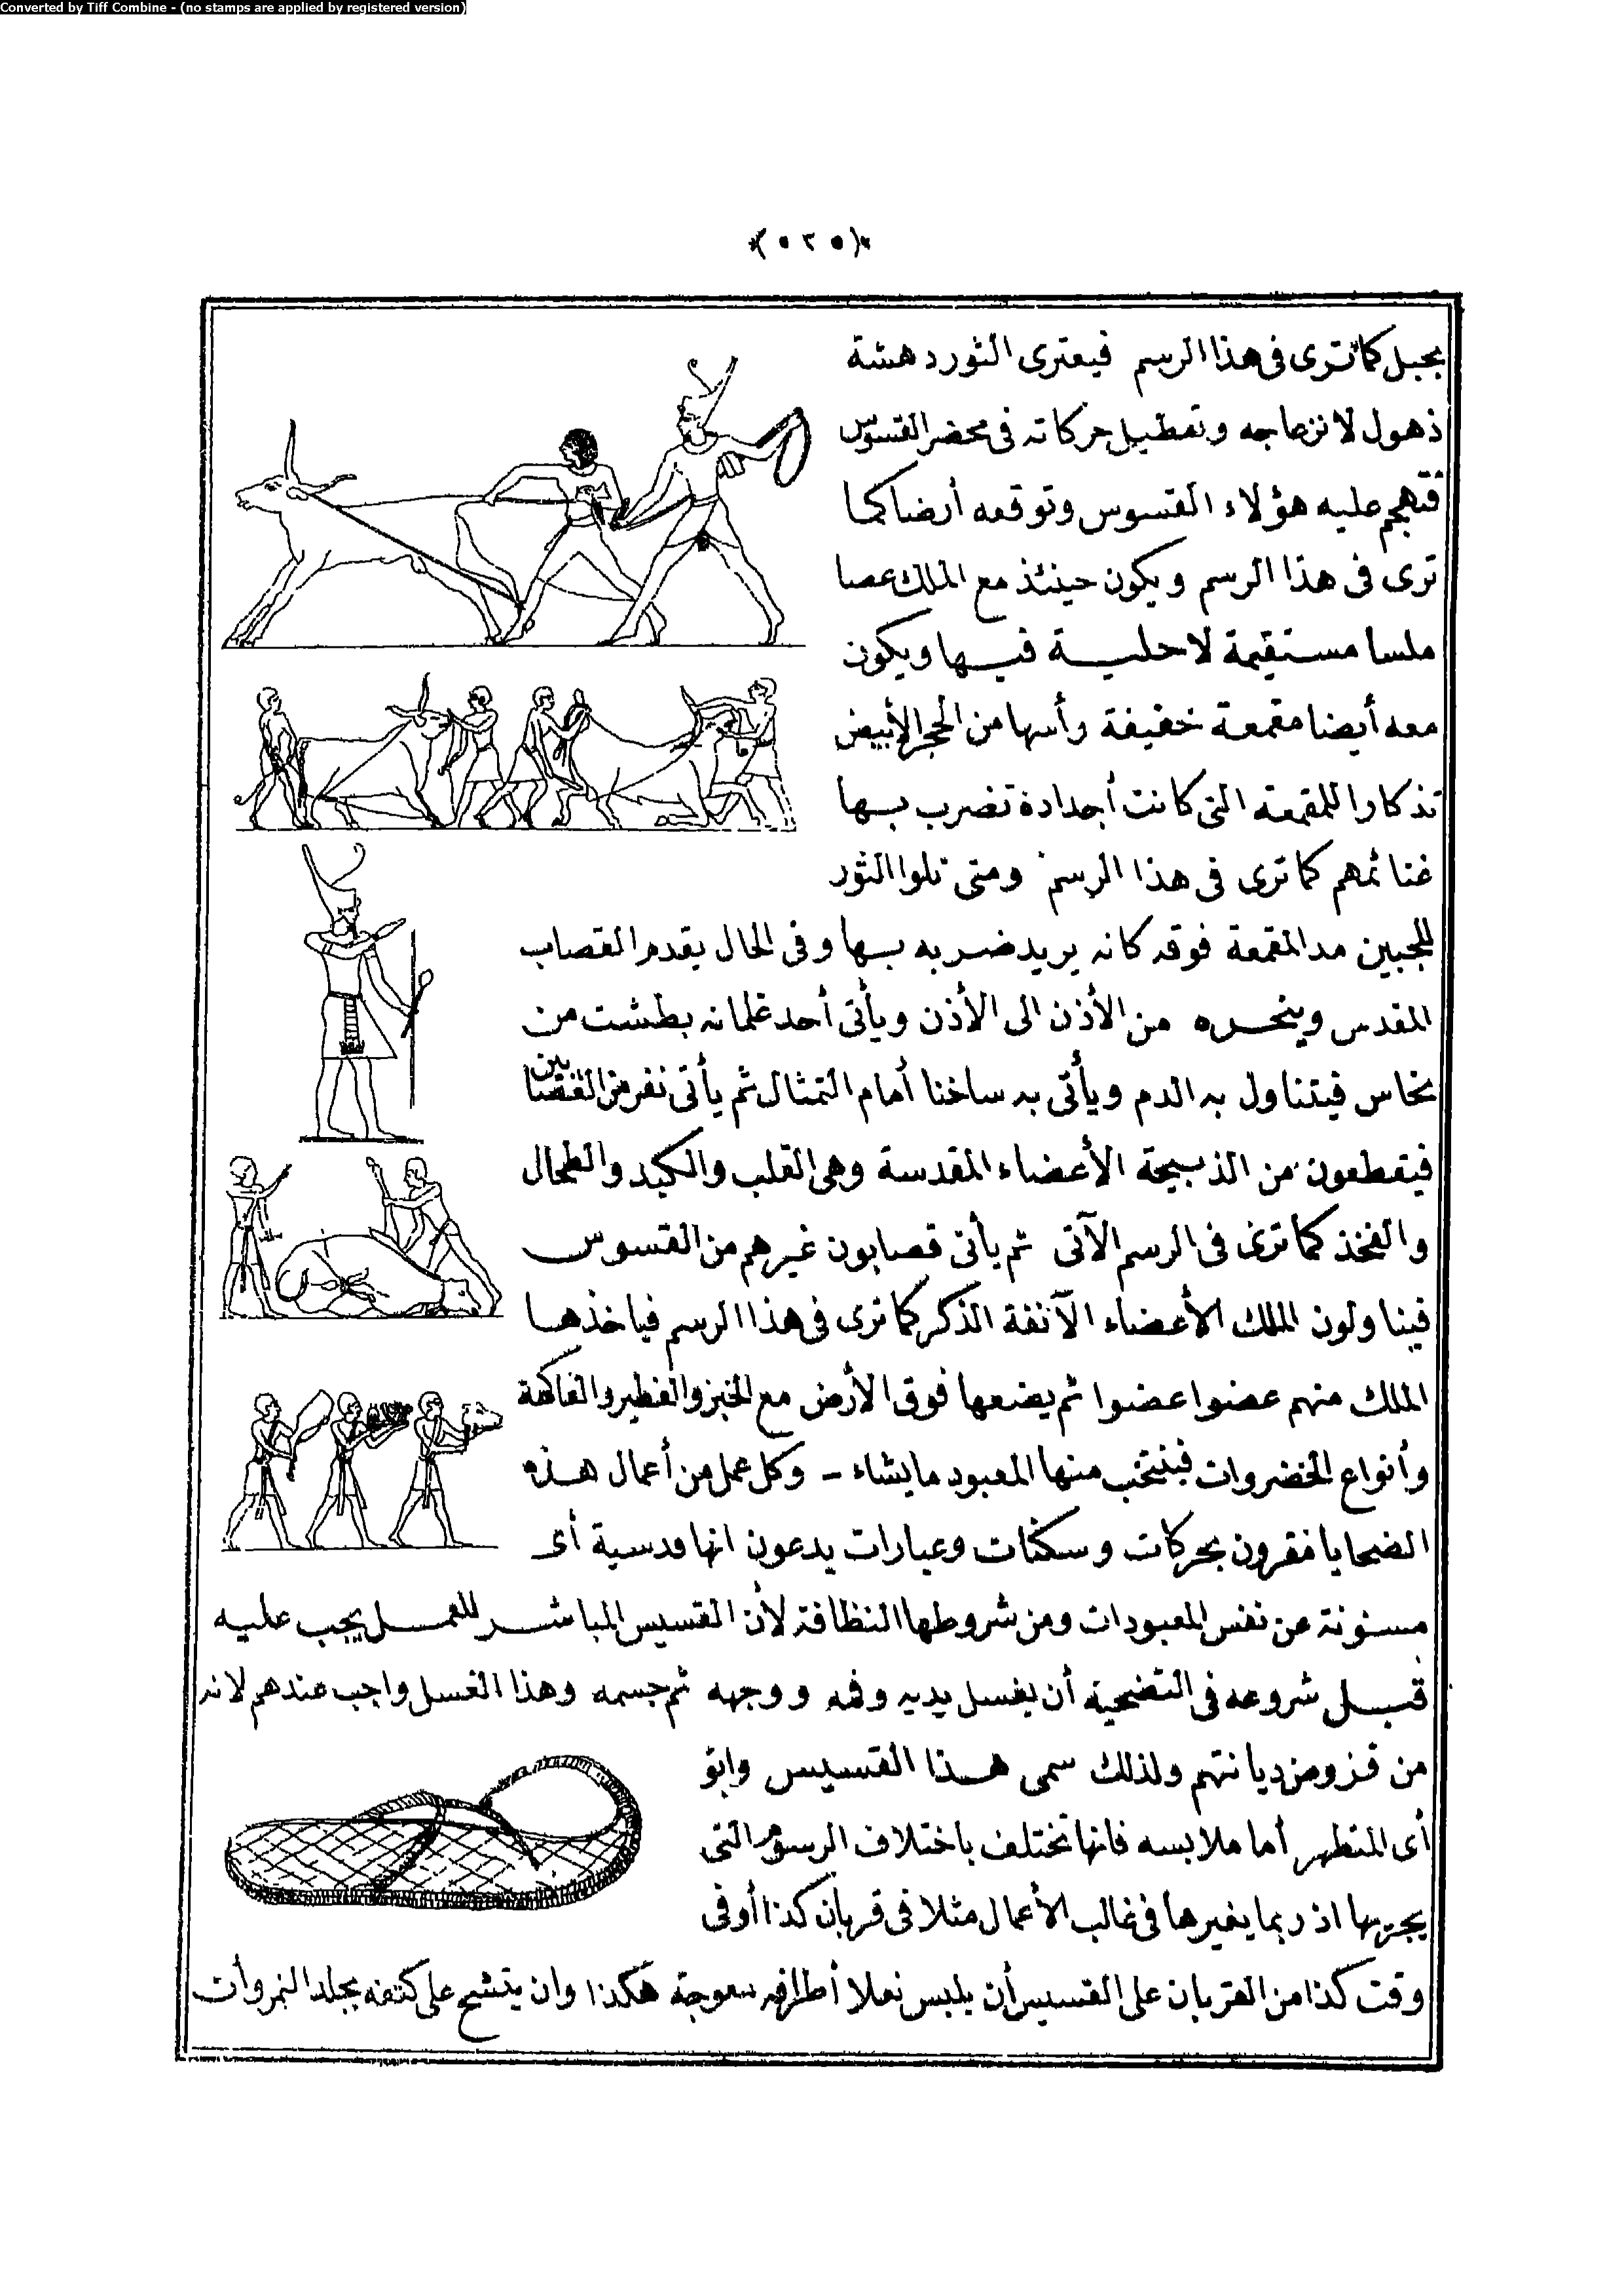 Converted by Tiff Combine - (no stamps are applied by registered version)
(٥٢٥)
بحبل كما ترى فى هذا الرسم فيعترى الثور دهشة
ذهول لانزعاجه وتعطيل حركاته فى محضر القسوس
فتهجم عليه هؤلاء القسوس وتوقعه أرضا كما
ترى فى هذا الرسم ويكون حينئذ مع الملك عصا
ملسا مستقيمة لا حلية فيها ويكون
معه أيضا مقمعة خفيفة رأسها من الحجر الأبيض
تذكارا للمقمعة التى كانت أجداده تضرب بها
غنائمهم كما ترى فى هذا الرسم ومتى تلوا الثور
للجبين مد المقمعة فوقه كانه يريد ضربه بها وفى الحال يقدم القصاب
المقدس وينحره من الأذن الى الأذن ويأتى أحد غلمانه بطشت من
نحاس فيتناول به الدم ويأتى به ساخنا أمام التمثال ثم يأتى نفر من القصابين
فيقطعون من الذبيحة الأعضاء المقدسة وهى القلب والكبد والطحال
والفخذ كما ترى فى الرسم الآتى ثم يأتى قصابون غيرهم من القسوس
فيناولون الملك الأعضاء الآنفة الذكر كما ترى فى هذا الرسم فياخذها
الملك منهم عضوا عضوا ثم يضعها فوق الأرض مع الخبز والفطير والفاكهة
وأنواع الخضروات فينتخب منها المعبود ما يشاء – وكل عمل من أعمال هذه
الضحايا مقرون بحركات وسكنات وعبارات يدعون انها قدسية أى
مسنونة عن نفس المعبودات ومن شروطها النظافة لأن القسيس المباشر للعمل يجب عليه
قبل شروعه فى التضحية أن يغسل يديه وفمه ووجهه ثم جسمه وهذا الغسل واجب عندهم لانه
من ديانتهم ولذلك سمى هذا القسيس وابو
أى المتطهر أما ملابسه فانها تختلف باختلاف الرسوم التى
يجريها اذ ربما يغيرها فى غالب الأعمال مثلا فى قربان كذا أو فى
وقت كذا من القربان على القسيس أن يلبس نعلا أطرافه معوجة هكذا وان يتشح على كتفه بجلد النمر وأت